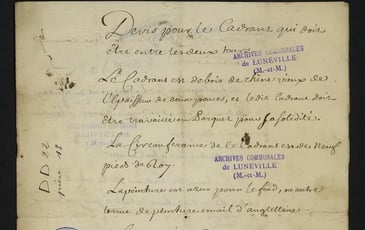 Devis pour le Cadrant qui doit
être entre les deux tours
ARCHIVES COMMUNALES
de LUNÉVILLE
(M.-et-M.)
Le Cadrant est de bois de chene vieux de
l'Epaisseur de deux pouces, et ledit Cadrant doit
être travaillé en Parquet pour sa solidité.
La Circonference de ce Cadrant est de Neuf
pieds de
ARCHIVES COMMUNALES
de LUNÉVILLE
(M.-et-M.)
La peinture est azur pour le fond, ou autre
terme de peinture email d'angleterre
DD 22
pièce 13